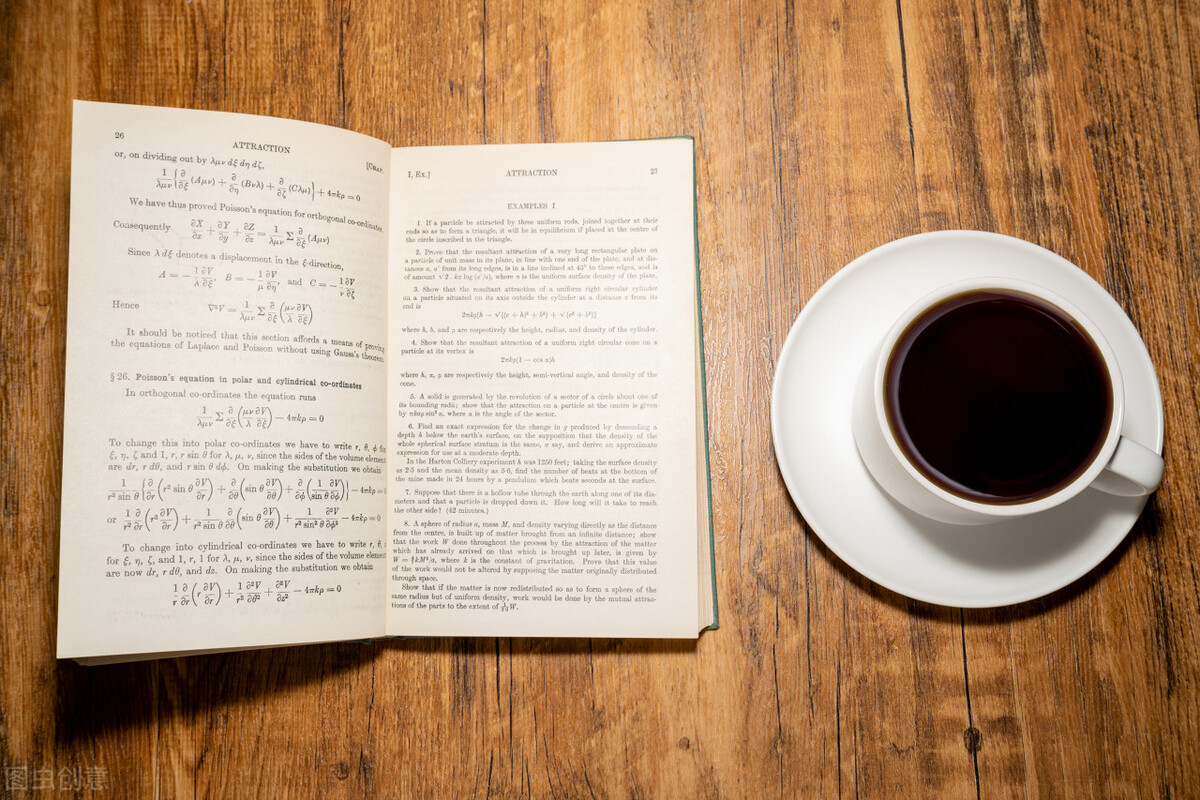 26
ATTRACTION
[CHAP.
or, on dividing out by λμν dξ dη dζ,
1/λμν {∂/∂ξ (Aμν) + ∂/∂η (Bνλ) + ∂/∂ζ (Cλμ)} + 4πkρ = 0
We have thus proved Poisson's equation for orthogonal co-ordinates.
Consequently ∂X/∂x + ∂Y/∂y + ∂Z/∂z = 1/λμν Σ ∂/∂ξ (Aμν)
Since λ dξ denotes a displacement in the ξ-direction,
A = − 1/λ ∂V/∂ξ, B = − 1/μ ∂V/∂η, and C = − 1/ν ∂V/∂ζ
Hence ∇²V = 1/λμν Σ ∂/∂ξ (μν/λ ∂V/∂ξ)
It should be noticed that this section affords a means of proving
the equations of Laplace and Poisson without using Gauss's theorem.
§ 26. Poisson's equation in polar and cylindrical co-ordinates
In orthogonal co-ordinates the equation runs
1/λμν Σ ∂/∂ξ (μν/λ ∂V/∂ξ) − 4πkρ = 0
To change this into polar co-ordinates we have to write r, θ, ϕ for
ξ, η, ζ and 1, r, r sin θ for λ, μ, ν, since the sides of the volume element
are dr, r dθ, and r sin θ dϕ. On making the substitution we obtain
1/r² sin θ {∂/∂r (r² sin θ ∂V/∂r) + ∂/∂θ (sin θ ∂V/∂θ) + ∂/∂ϕ (1/sin θ ∂V/∂ϕ)} − 4πkρ = 0
or 1/r² ∂/∂r (r² ∂V/∂r) + 1/r² sin θ ∂/∂θ (sin θ ∂V/∂θ) + 1/r² sin² θ ∂²V/∂ϕ² − 4πkρ = 0
To change into cylindrical co-ordinates we have to write r, θ, z
for ξ, η, ζ, and 1, r, 1 for λ, μ, ν, since the sides of the volume element
are now dr, r dθ, and dz. On making the substitution we obtain
1/r ∂/∂r (r ∂V/∂r) + 1/r² ∂²V/∂θ² + ∂²V/∂z² − 4πkρ = 0
I, Ex.]
ATTRACTION
27
EXAMPLES I
1. If a particle be attracted by three uniform rods, joined together at their
ends so as to form a triangle, it will be in equilibrium if placed at the centre of
the circle inscribed in the triangle.
2. Prove that the resultant attraction of a very long rectangular plate on
a particle of unit mass in its plane, in line with one end of the plate, and at dis-
tances a, a′ from its long edges, is in a line inclined at 45° to these edges, and is
of amount √2 . kσ log (a′/a), where σ is the uniform surface density of the plate.
3. Show that the resultant attraction of a uniform right circular cylinder
on a particle situated on its axis outside the cylinder at a distance c from its
end is
2πkρ[h − √{(c + h)² + b²} + √{c² + b²}]
where h, b, and ρ are respectively the height, radius, and density of the cylinder.
4. Show that the resultant attraction of a uniform right circular cone on a
particle at its vertex is
2πkρ(1 − cos α)h
where h, α, ρ are respectively the height, semi-vertical angle, and density of the
cone.
5. A solid is generated by the revolution of a sector of a circle about one of
its bounding radii; show that the attraction on a particle at the centre is given
by πkaρ sin² α, where α is the angle of the sector.
6. Find an exact expression for the change in g produced by descending a
depth h below the earth's surface, on the supposition that the density of the
whole spherical surface stratum is the same, σ say, and derive an approximate
expression for use at a moderate depth.
In the Harton Colliery experiment h was 1250 feet; taking the surface density
as 2·5 and the mean density as 5·6, find the number of beats at the bottom of
the mine made in 24 hours by a pendulum which beats seconds at the surface.
7. Suppose that there is a hollow tube through the earth along one of its dia-
meters and that a particle is dropped down it. How long will it take to reach
the other side? (42 minutes.)
8. A sphere of radius a, mass M, and density varying directly as the distance
from the centre, is built up of matter brought from an infinite distance; show
that the work W done throughout the process by the attraction of the matter
which has already arrived on that which is brought up later, is given by
W = kM²/a, where k is the constant of gravitation. Prove that this value
of the work would not be altered by supposing the matter originally distributed
through space.
Show that if the matter is now redistributed so as to form a sphere of the
same radius but of uniform density, work would be done by the mutual attrac-
tions of the parts to the extent of W.
图虫创意